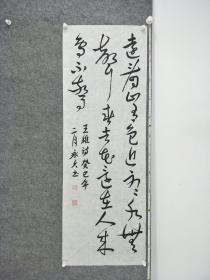 遠看山有色近听水無
聲春去花還在人來
鳥不驚
王維詩癸巳年
二月